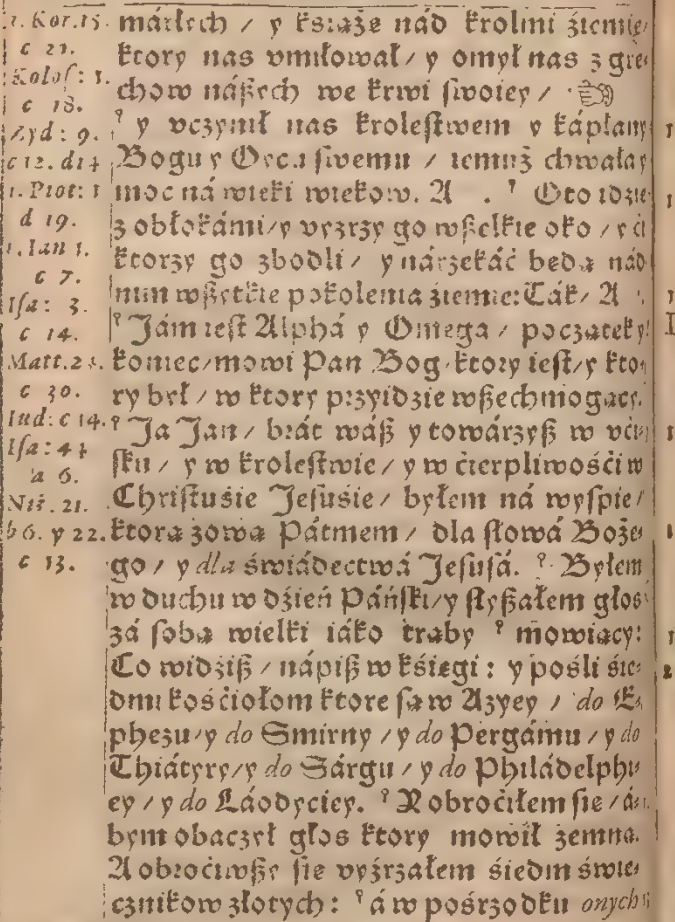 1. Kor. 15.
c 21.
Kolos: 1.
c 18.
Zyd: 9.
c 12. d 14
1. Piot: 1
d 19.
1. Ian 1.
c 7.
Isa: 3.
c 14.
Matt. 24.
c 30.
Iud: c 14.
Isa: 44
a 6.
Niż. 21.
b 6. y 22.
c 13.
márłech / y kśiąże nád krolmi źiemie /
ktory nas vmiłował / y omył nas z grze-
chow nászych we krwi swoiey /
y vczynił nas krolestwem y kápłany
Bogu y Oycu swemu / temuż chwałá y
moc ná wieki wiekow. A . Oto idzie
z obłokámi / y vyzrzy go wszelkie oko / y ći
ktorzy go zbodli / y nárzekáć będą nád
nim wszytkie pokolenia źiemie: Ták / A .
Jám iest Alphá y Omega / początek y
koniec / mowi Pan Bog ktory iest / y kto-
ry był / w ktory przyidzie wszechmogący.
Ja Jan / brát wász y towárzysz w vći-
sku / y w krolestwie / y w ćierpliwośći w
Christuśie Jesuśie / byłem ná wyspie /
ktorą zową Pátmem / dla słowá Boże-
go / y dla świádectwá Jesusá. Byłem
w duchu w dźień Páński / y słyszałem głos
zá sobą wielki iáko trąby mowiący:
Co widźisz / nápisz w kśięgi: y pośli śie-
dmi kośćiołom ktore są w Azyey / do E-
phezu / y do Smirny / y do Pergámu / y do
Thiátyry / y do Sárgu / y do Philádelphi-
ey / y do Láodyciey. Y obroćiłem sie / á-
bym obaczył głos ktory mowił zemną.
A obroćiwszy sie vyźrzałem śiedm świe-
cznikow złotych: á w pośrzodku onych